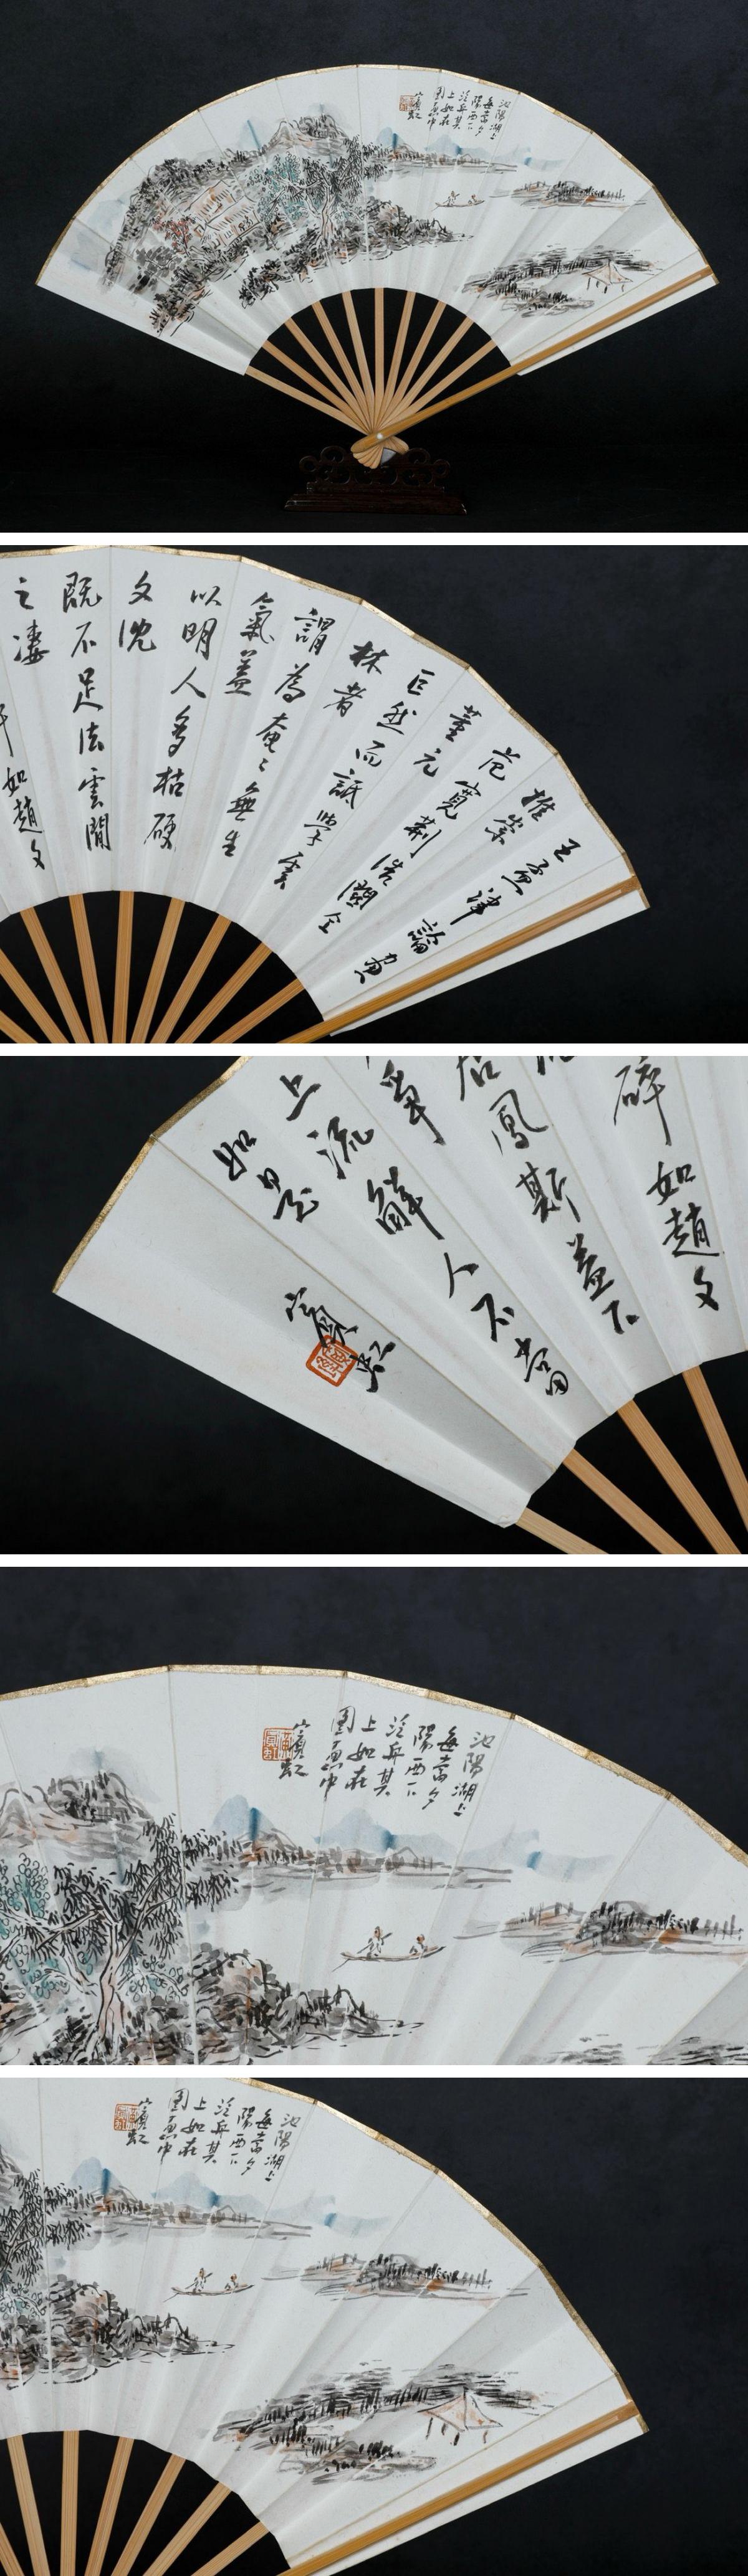 池陽湖上
每當夕
陽西下
泛舟其
上如在
圖画中
賓虹
王孟津論畫
推崇
范寬荊浩關仝
董元
巨然而詆學雲
林者
謂為奄奄無生
氣蓋
以明人多枯硬
文沈
既不足法雲間
之淒
如趙文
碎如趙文
鳳斯蓋下
上流鮮人不當
如是
賓虹
池陽湖上
每當夕
陽西下
泛舟其
上如在
圖画中
賓虹
池陽湖上
每當夕
陽西下
泛舟其
上如在
圖画中
賓虹